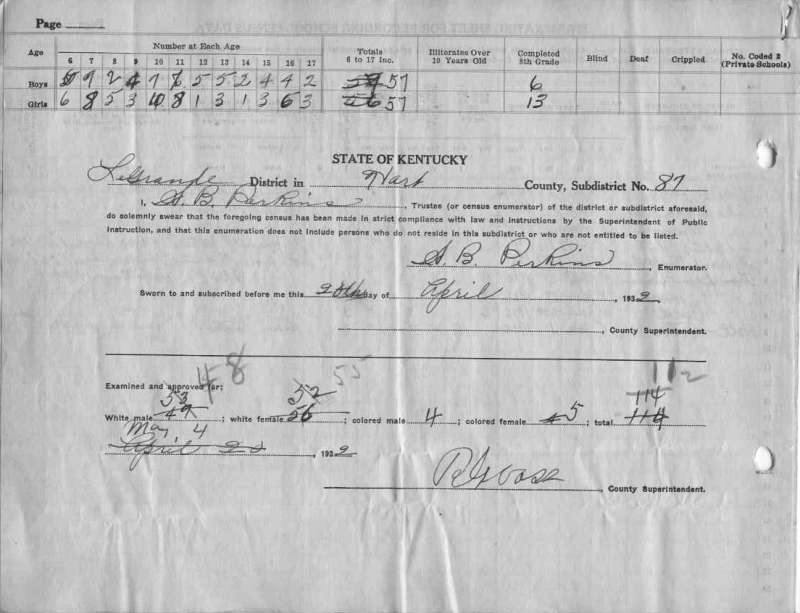 Page
Age Number at Each Age Totals 6 to 17 Inc. Illiterates Over 10 Years Old Completed 8th Grade Blind Deaf Crippled No. Coded 2 (Private Schools)
6 7 8 9 10 11 12 13 14 15 16 17
Boys 9 2 4 7 6 5 5 2 4 4 2 57 6
Girls 6 8 5 3 10 8 1 3 1 3 6 3 57 13
STATE OF KENTUCKY
LeGrande District in Hart County, Subdistrict No. 87
I, S. B. Perkins, Trustee (or census enumerator) of the district or subdistrict aforesaid,
do solemnly swear that the foregoing census has been made in strict compliance with law and instructions by the Superintendent of Public
Instruction, and that this enumeration does not include persons who do not reside in this subdistrict or who are not entitled to be listed.
S. B. Perkins, Enumerator.
Sworn to and subscribed before me this day of April, 1932
, County Superintendent.
48 55 112
Examined and approved for:
53 52 114
White male 49; white female 56; colored male 4; colored female 5; total 114
May 4
April 20, 1932
, County Superintendent.